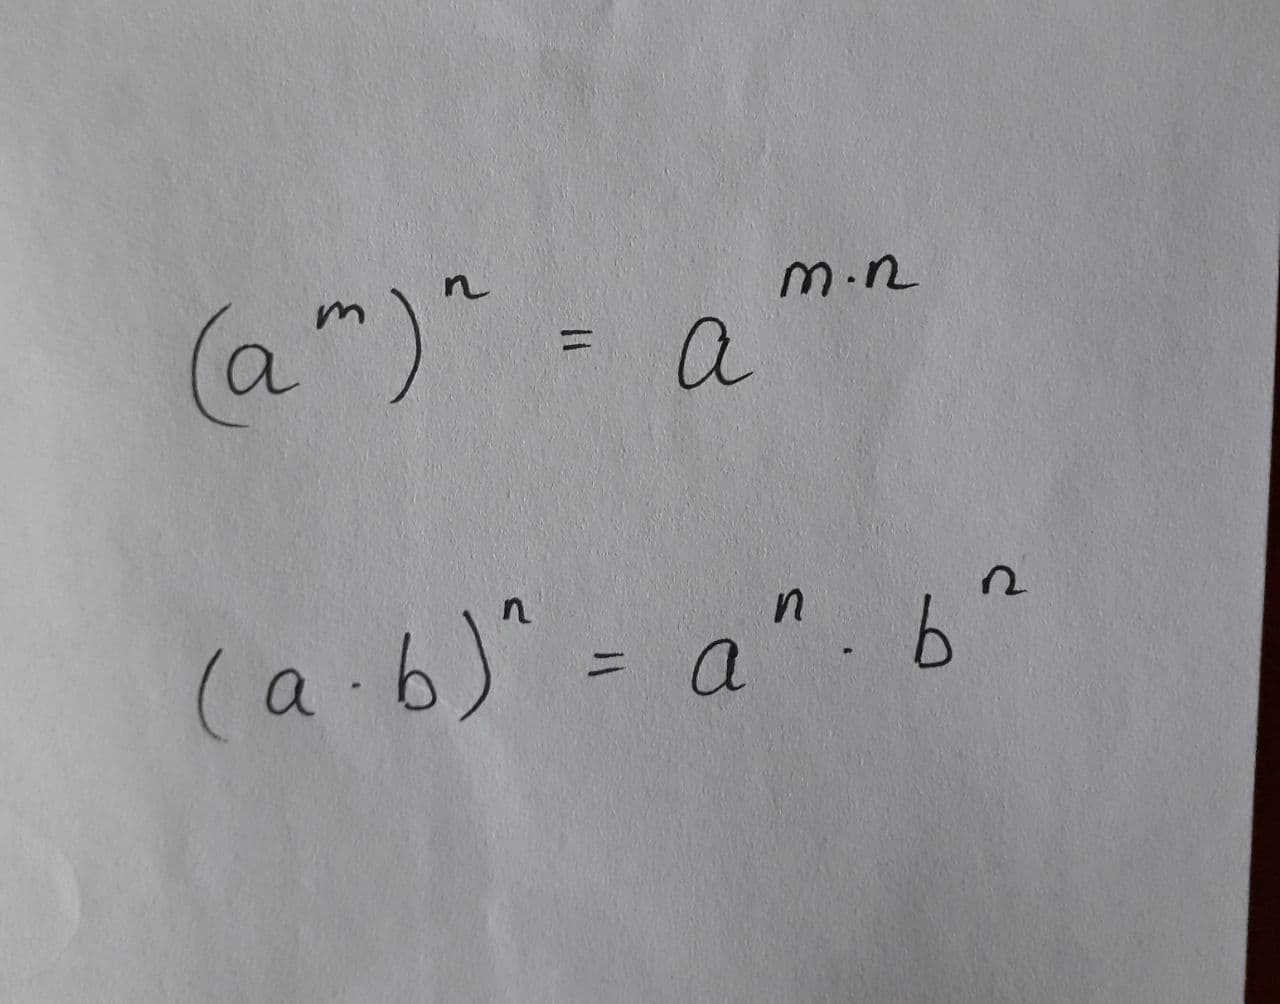 (a^m)^n = a^{m·n}
(a·b)^n = a^n · b^n